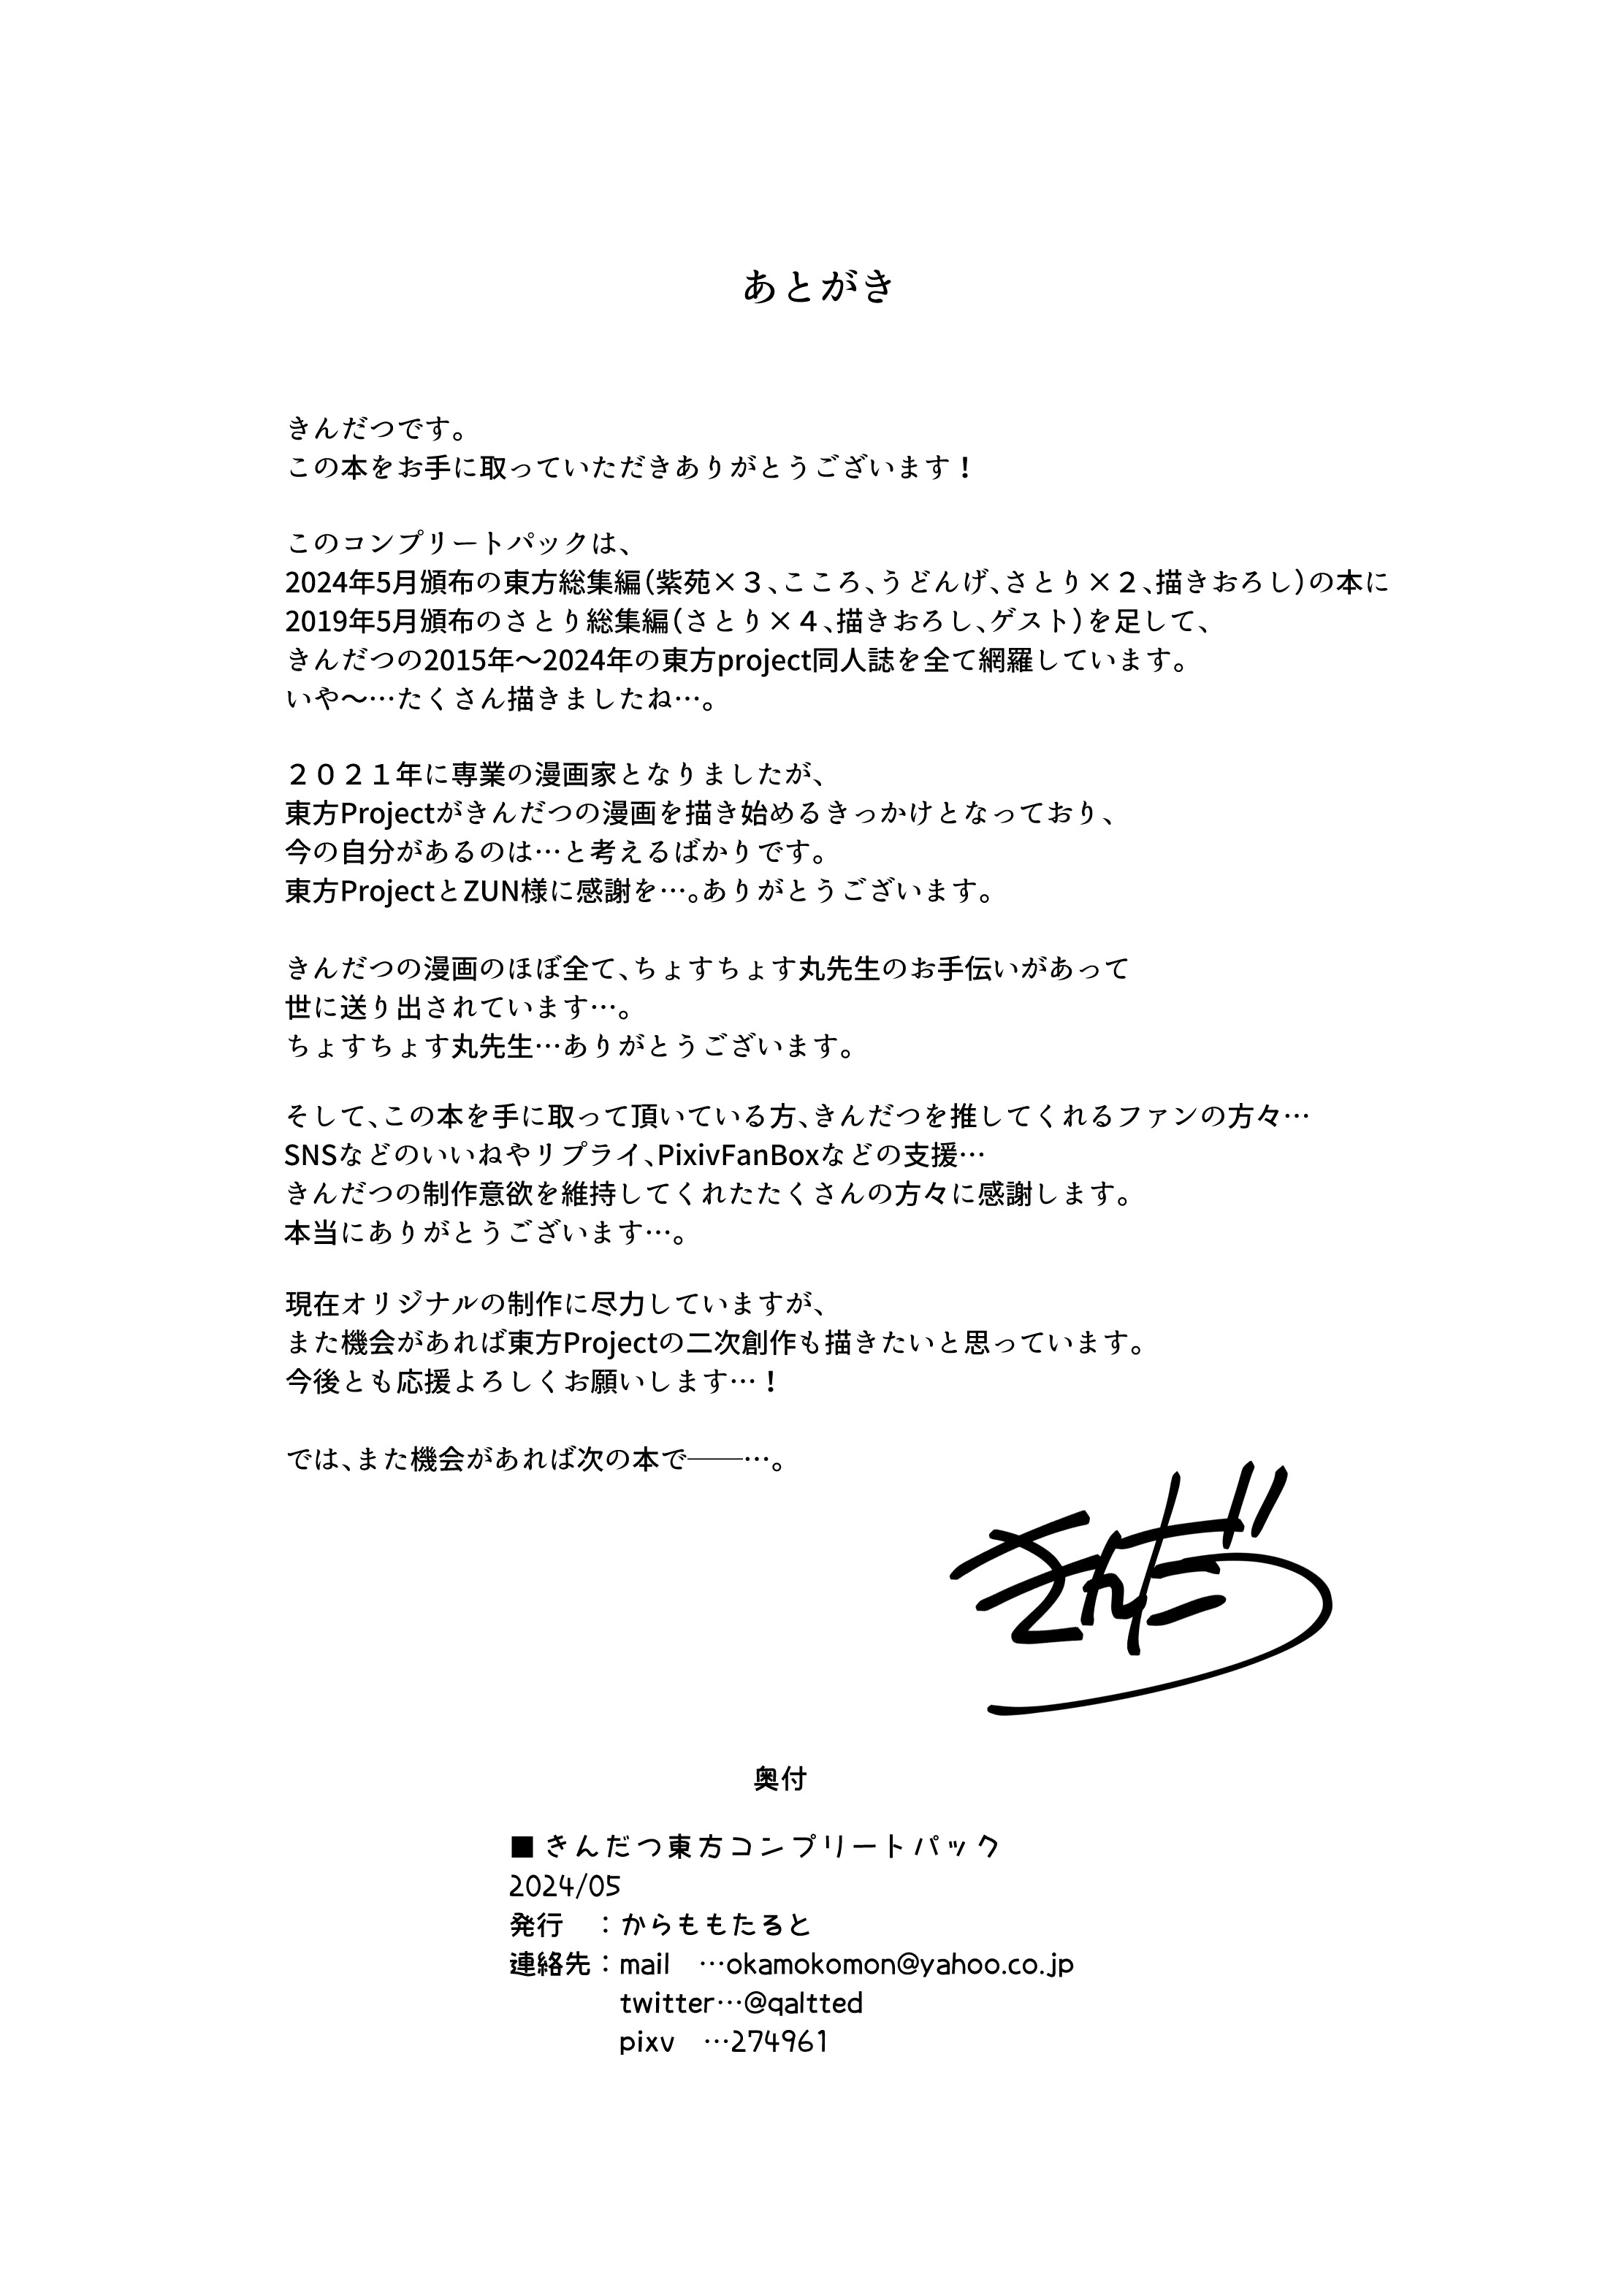 あとがき
きんだつです。
この本をお手に取っていただきありがとうございます！
このコンプリートパックは、
2024年5月頒布の東方総集編（紫苑×３、こころ、うどんげ、さとり×２、描きおろし）の本に
2019年5月頒布のさとり総集編（さとり×４、描きおろし、ゲスト）を足して、
きんだつの2015年～2024年の東方project同人誌を全て網羅しています。
いや～…たくさん描きましたね…。
２０２１年に専業の漫画家となりましたが、
東方Projectがきんだつの漫画を描き始めるきっかけとなっており、
今の自分があるのは…と考えるばかりです。
東方ProjectとZUN様に感謝を…。ありがとうございます。
きんだつの漫画のほぼ全て、ちょすちょす丸先生のお手伝いがあって
世に送り出されています…。
ちょすちょす丸先生…ありがとうございます。
そして、この本を手に取って頂いている方、きんだつを推してくれるファンの方々…
SNSなどのいいねやリプライ、PixivFanBoxなどの支援…
きんだつの制作意欲を維持してくれたたくさんの方々に感謝します。
本当にありがとうございます…。
現在オリジナルの制作に尽力していますが、
また機会があれば東方Projectの二次創作も描きたいと思っています。
今後とも応援よろしくお願いします…！
では、また機会があれば次の本で――…。
きんだつ
奥付
■ きんだつ東方コンプリートパック
2024/05
発行　：からももたると
連絡先：mail　…okamokomon@yahoo.co.jp
twitter…@qaltted
pixv　…274961